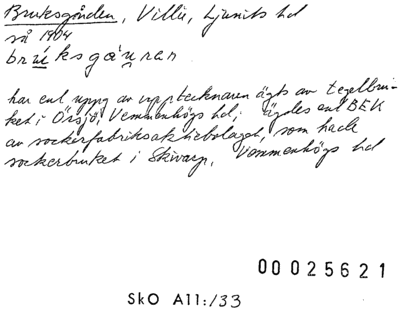 Bruksgården, Villie, Ljunits hd
så 1904
brúksgạ́ụran
har enl uppg av upptecknaren ägts av tegelbru-
ket i Örsjö, Vemmenhögs hd; ägdes enl BEK
av sockerfabriksaktiebolaget, som hade
sockerbruket i Skivarp, Vemmenhögs hd
00025621
SkO A11:/33